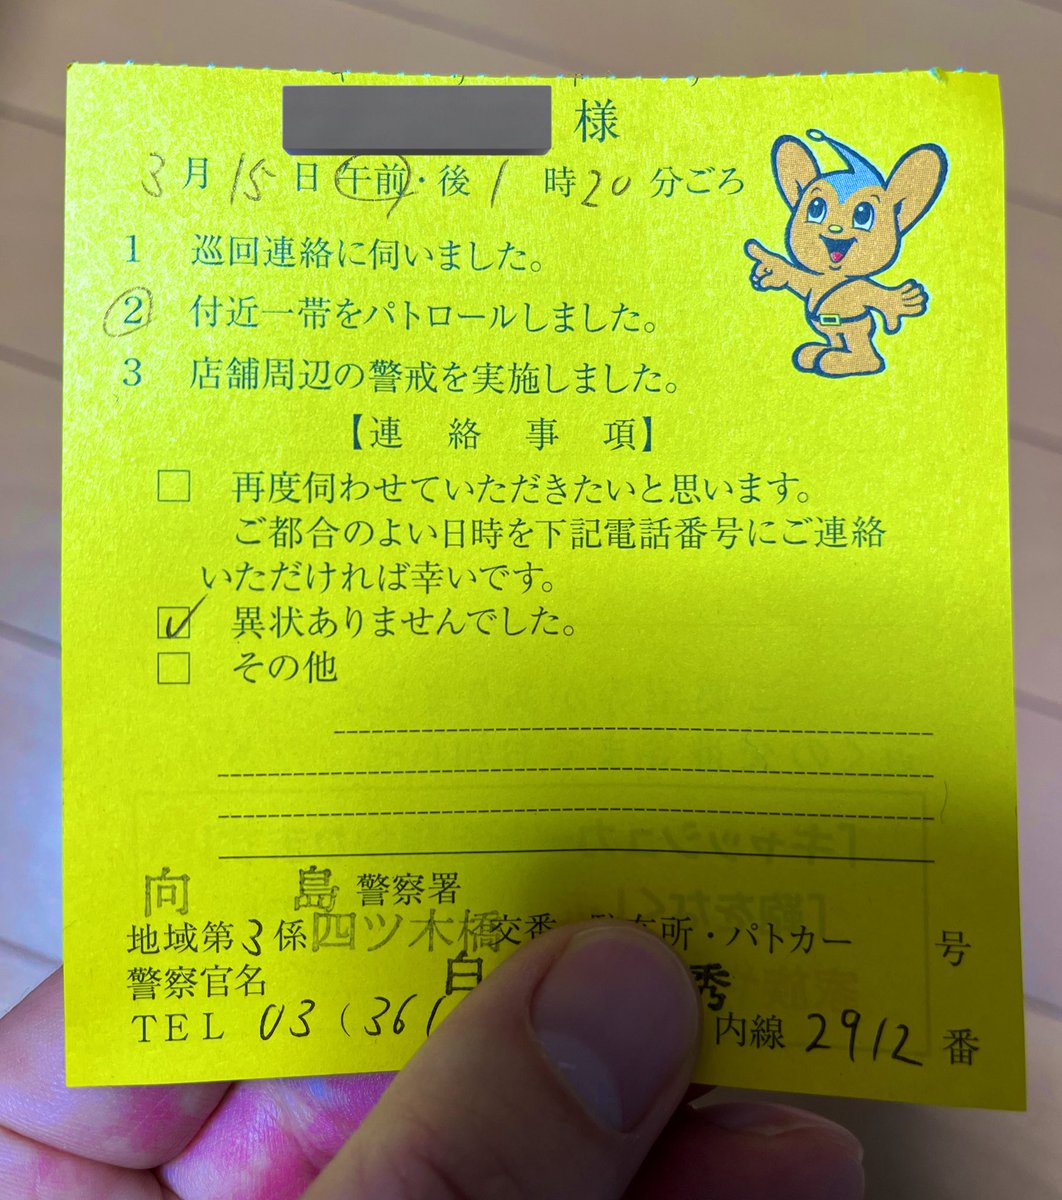 様
3月15日午前・後1時20分ごろ
1 巡回連絡に伺いました。
2 付近一帯をパトロールしました。
3 店舗周辺の警戒を実施しました。
【連絡事項】
□ 再度伺わせていただきたいと思います。
ご都合のよい日時を下記電話番号にご連絡
いただければ幸いです。
☑ 異状ありませんでした。
□ その他
向島警察署
地域第3係四ツ木橋交番 所・パトカー 号
警察官名 白 秀
TEL 03(361 内線2912番